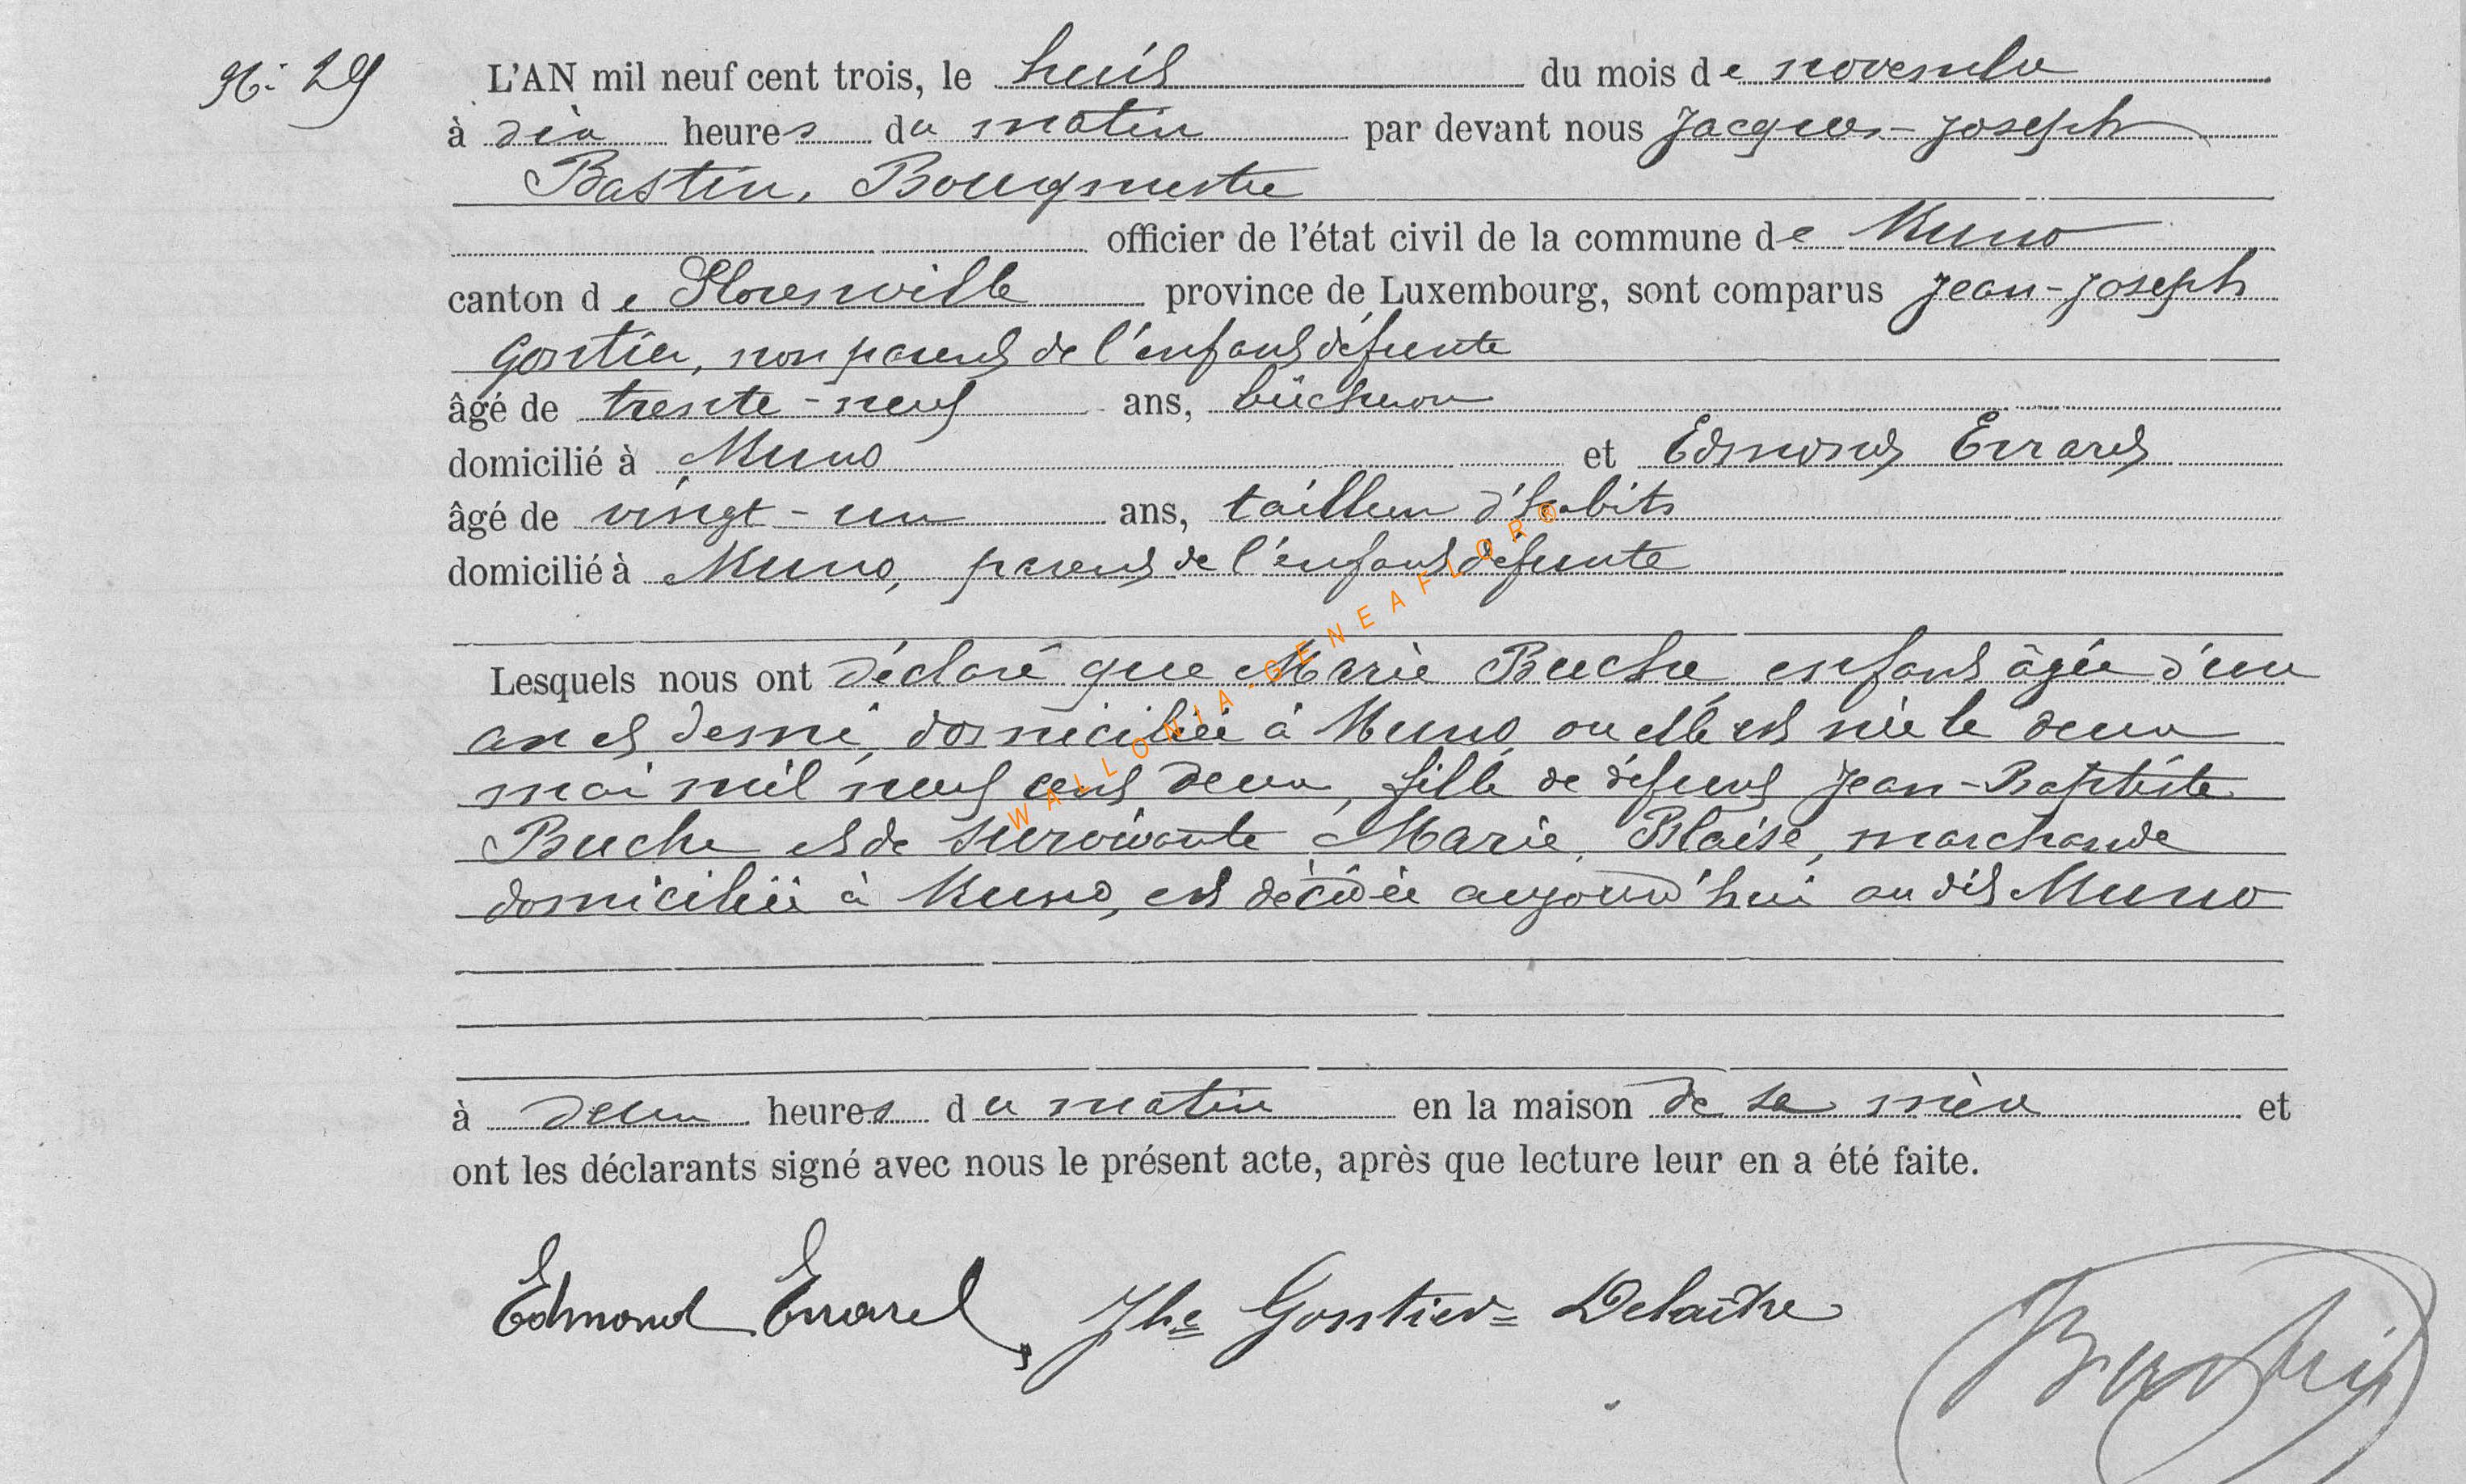 N° 29
L'AN mil neuf cent trois, le huit du mois de novembre
à dix heures du matin par devant nous Jacques-Joseph
Bastin, Bourgmestre
officier de l'état civil de la commune de Muno
canton de Florenville province de Luxembourg, sont comparus Jean-Joseph
Gontier, non parent de l'enfant défunte
âgé de trente-neuf ans, bûcheron
domicilié à Muno et Edmond Errard
âgé de vingt-un ans, tailleur d'habits
domicilié à Muno, parent de l'enfant défunte
Lesquels nous ont déclaré que Marie Buche, enfant âgée d'un
an et demi, domiciliée à Muno où elle est née le deux
mai mil neuf cent deux, fille de défunt Jean-Baptiste
Buche et de survivante Marie Blaise, marchande
domiciliée à Muno, est décédée aujourd'hui au dit Muno
à deux heures du matin en la maison de sa mère et
ont les déclarants signé avec nous le présent acte, après que lecture leur en a été faite.
Edmond Errard, Jhe Gontier=Delaitre
Bastin
WALLONIA-GENEAFLOR®